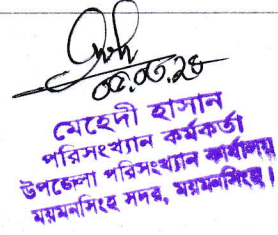 ০৫.০৩.২৪
মেহেদী হাসান
পরিসংখ্যান কর্মকর্তা
উপজেলা পরিসংখ্যান কার্যালয়
ময়মনসিংহ সদর, ময়মনসিংহ।